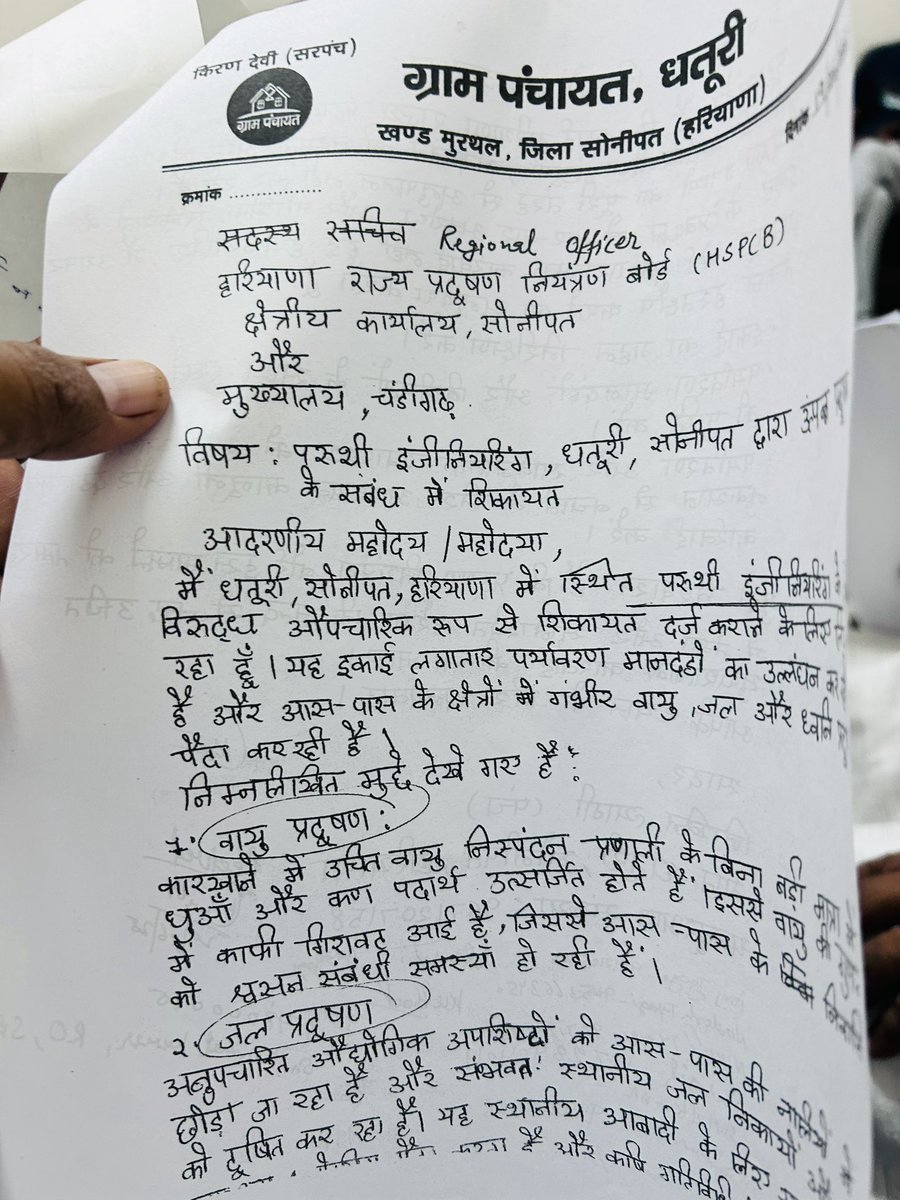 किरण देवी (सरपंच)
ग्राम पंचायत
ग्राम पंचायत, धतूरी
खण्ड मुरथल, जिला सोनीपत (हरियाणा)
दिनांक
क्रमांक ................
सदस्य सचिव Regional officer
हरियाणा राज्य प्रदूषण नियंत्रण बोर्ड (HSPCB)
क्षेत्रीय कार्यालय, सोनीपत
और
मुख्यालय, चंडीगढ़.
विषय: पुरूथी इंजीनियरिंग, धतूरी, सोनीपत द्वारा
के संबंध में शिकायत
आदरणीय महोदय / महोदया,
मैं धतूरी, सोनीपत, हरियाणा में स्थित परुथी इंजीनियरिंग के
विरुद्ध औपचारिक रूप से शिकायत दर्ज कराने के लिए
रहा हूँ। यह इकाई लगातार पर्यावरण मानदंडों का उल्लंघन कर
है और आस-पास के क्षेत्रों में गंभीर वायु, जल और ध्वनि
पैदा कर रही है।
निम्नलिखित मुद्दे देखे गए हैं:
1. वायु प्रदूषण:
कारखाने में उचित वायु निस्पंदन प्रणाली के बिना बड़ी मात्रा
धुआँ और कण पदार्थ उत्सर्जित होते हैं। इससे वायु की
में काफी गिरावट आई है, जिससे आस-पास के
को श्वसन संबंधी समस्याँ हो रही हैं।
२. जल प्रदूषण
अनुपचारित औद्योगिक अपशिष्टों को आस-पास की नालियों
छोड़ा जा रहा है और संभवतः स्थानीय जल निकायों
को दूषित कर रहा है। यह स्थानीय आबादी के लिए
है और कृषि